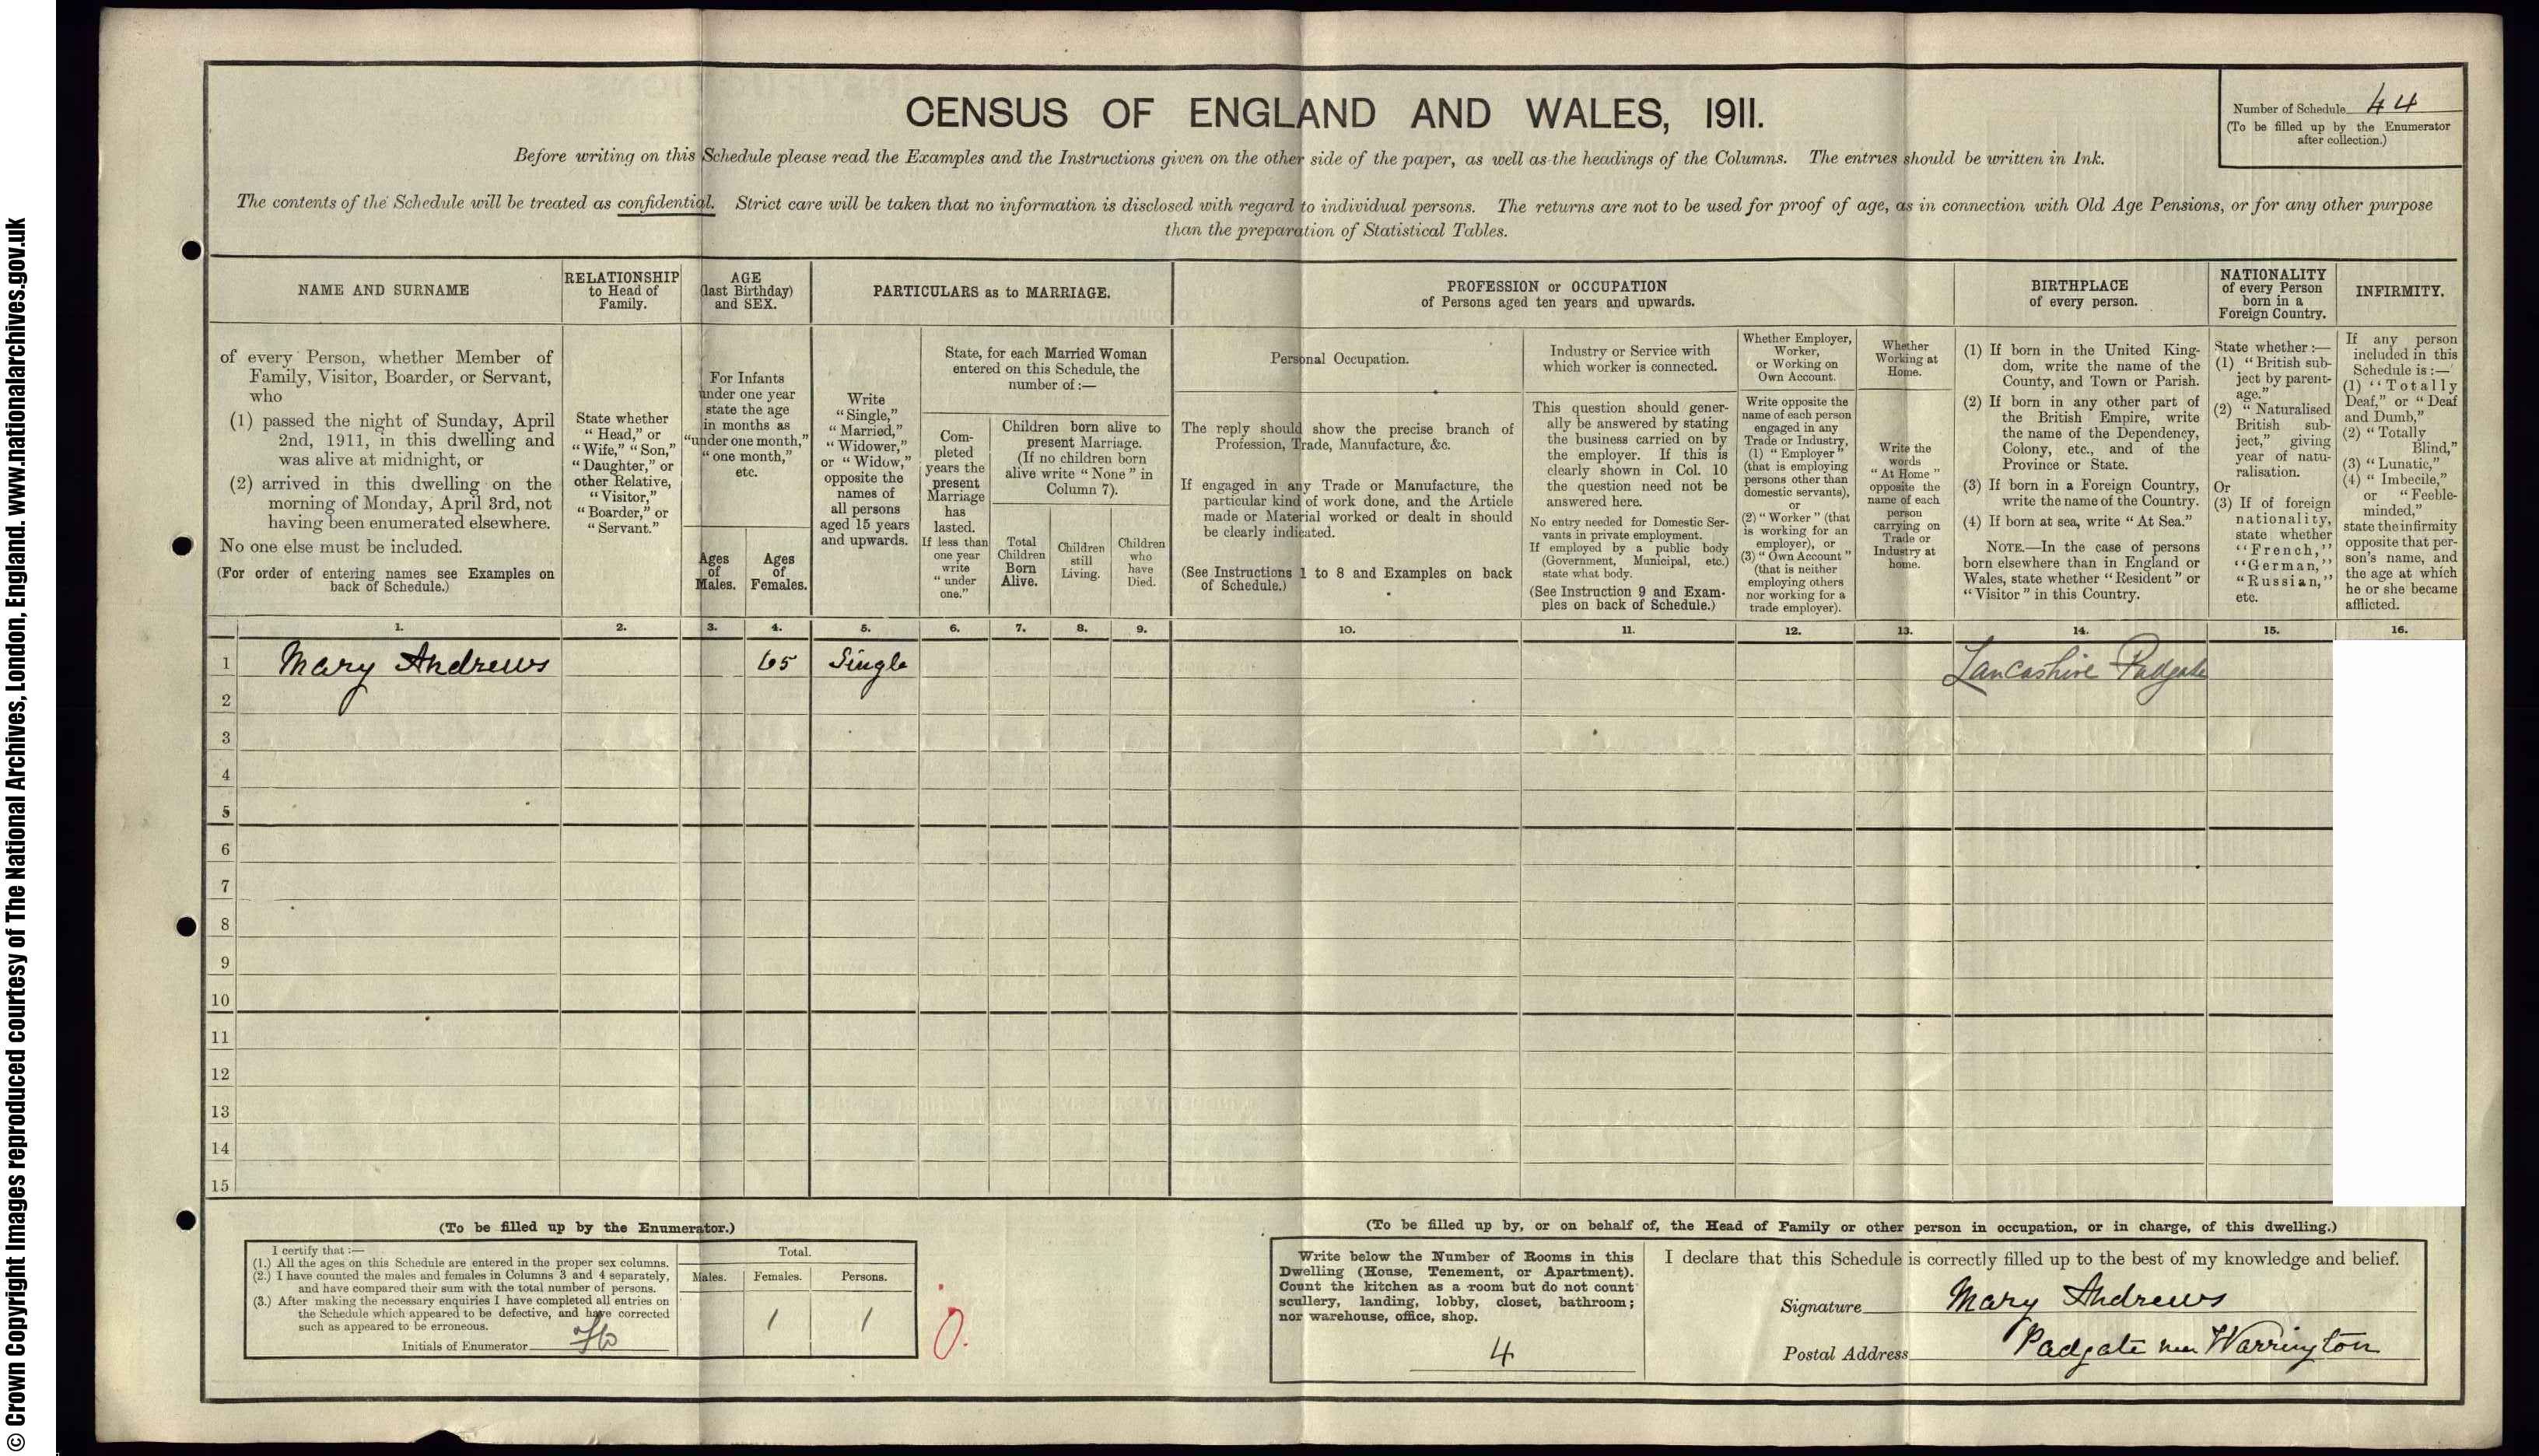 CENSUS OF ENGLAND AND WALES, 1911.
Number of Schedule 44
(To be filled up by the Enumerator
after collection.)
Before writing on this Schedule please read the Examples and the Instructions given on the other side of the paper, as well as the headings of the Columns. The entries should be written in Ink.
The contents of the Schedule will be treated as confidential. Strict care will be taken that no information is disclosed with regard to individual persons. The returns are not to be used for proof of age, as in connection with Old Age Pensions, or for any other purpose
than the preparation of Statistical Tables.
NAME AND SURNAME
of every Person, whether Member of
Family, Visitor, Boarder, or Servant,
who
(1) passed the night of Sunday, April
2nd, 1911, in this dwelling and
was alive at midnight, or
(2) arrived in this dwelling on the
morning of Monday, April 3rd, not
having been enumerated elsewhere.
No one else must be included.
(For order of entering names see Examples on
back of Schedule.)
RELATIONSHIP
to Head of
Family.
State whether
"Head," or
"Wife," "Son,"
"Daughter," or
other Relative,
"Visitor,"
"Boarder," or
"Servant."
AGE
(last Birthday)
and SEX.
For Infants
under one year
state the age
in months as
"under one month,"
"one month,"
etc.
Ages
of
Males.
Ages
of
Females.
PARTICULARS as to MARRIAGE.
Write
"Single,"
"Married,"
"Widower,"
or "Widow,"
opposite the
names of
all persons
aged 15 years
and upwards.
State, for each Married Woman
entered on this Schedule, the
number of :—
Com-
pleted
years the
present
Marriage
has
lasted.
If less than
one year
write
"under
one."
Children born alive to
present Marriage.
(If no children born
alive write "None" in
Column 7).
Total
Children
Born
Alive.
Children
still
Living.
Children
who
have
Died.
PROFESSION or OCCUPATION
of Persons aged ten years and upwards.
Personal Occupation.
The reply should show the precise branch of
Profession, Trade, Manufacture, &c.
If engaged in any Trade or Manufacture, the
particular kind of work done, and the Article
made or Material worked or dealt in should
be clearly indicated.
(See Instructions 1 to 8 and Examples on back
of Schedule.)
Industry or Service with
which worker is connected.
This question should gener-
ally be answered by stating
the business carried on by
the employer. If this is
clearly shown in Col. 10
the question need not be
answered here.
No entry needed for Domestic Ser-
vants in private employment.
If employed by a public body
(Government, Municipal, etc.)
state what body.
(See Instruction 9 and Exam-
ples on back of Schedule.)
Whether Employer,
Worker,
or Working on
Own Account.
Write opposite the
name of each person
engaged in any
Trade or Industry,
(1) "Employer"
(that is employing
persons other than
domestic servants),
or
(2) "Worker" (that
is working for an
employer), or
(3) "Own Account"
(that is neither
employing others
nor working for a
trade employer).
Whether
Working at
Home.
Write the
words
"At Home"
opposite the
name of each
person
carrying on
Trade or
Industry at
home.
BIRTHPLACE
of every person.
(1) If born in the United King-
dom, write the name of the
County, and Town or Parish.
(2) If born in any other part of
the British Empire, write
the name of the Dependency,
Colony, etc., and of the
Province or State.
(3) If born in a Foreign Country,
write the name of the Country.
(4) If born at sea, write "At Sea."
NOTE.—In the case of persons
born elsewhere than in England or
Wales, state whether "Resident" or
"Visitor" in this Country.
NATIONALITY
of every Person
born in a
Foreign Country.
State whether :—
(1) "British sub-
ject by parent-
age."
(2) "Naturalised
British sub-
ject," giving
year of natu-
ralisation.
Or
(3) If of foreign
nationality,
state whether
"French,"
"German,"
"Russian,"
etc.
INFIRMITY.
If any person
included in this
Schedule is :—
(1) "Totally
Deaf," or "Deaf
and Dumb,"
(2) "Totally
Blind,"
(3) "Lunatic,"
(4) "Imbecile,"
or "Feeble-
minded,"
state the infirmity
opposite that per-
son's name, and
the age at which
he or she became
afflicted.
1. 2. 3. 4. 5. 6. 7. 8. 9. 10. 11. 12. 13. 14. 15. 16.
1 Mary Andrews 65 Single Lancashire Padgate
2
3
4
5
6
7
8
9
10
11
12
13
14
15
(To be filled up by the Enumerator.)
I certify that :—
(1.) All the ages on this Schedule are entered in the proper sex columns.
(2.) I have counted the males and females in Columns 3 and 4 separately,
and have compared their sum with the total number of persons.
(3.) After making the necessary enquiries I have completed all entries on
the Schedule which appeared to be defective, and have corrected
such as appeared to be erroneous.
Initials of Enumerator
Total.
Males. Females. Persons.
1 1
0.
(To be filled up by, or on behalf of, the Head of Family or other person in occupation, or in charge, of this dwelling.)
Write below the Number of Rooms in this
Dwelling (House, Tenement, or Apartment).
Count the kitchen as a room but do not count
scullery, landing, lobby, closet, bathroom;
nor warehouse, office, shop.
4
I declare that this Schedule is correctly filled up to the best of my knowledge and belief.
Signature Mary Andrews
Postal Address Padgate near Warrington
© Crown Copyright Images reproduced courtesy of The National Archives, London, England. www.nationalarchives.gov.uk